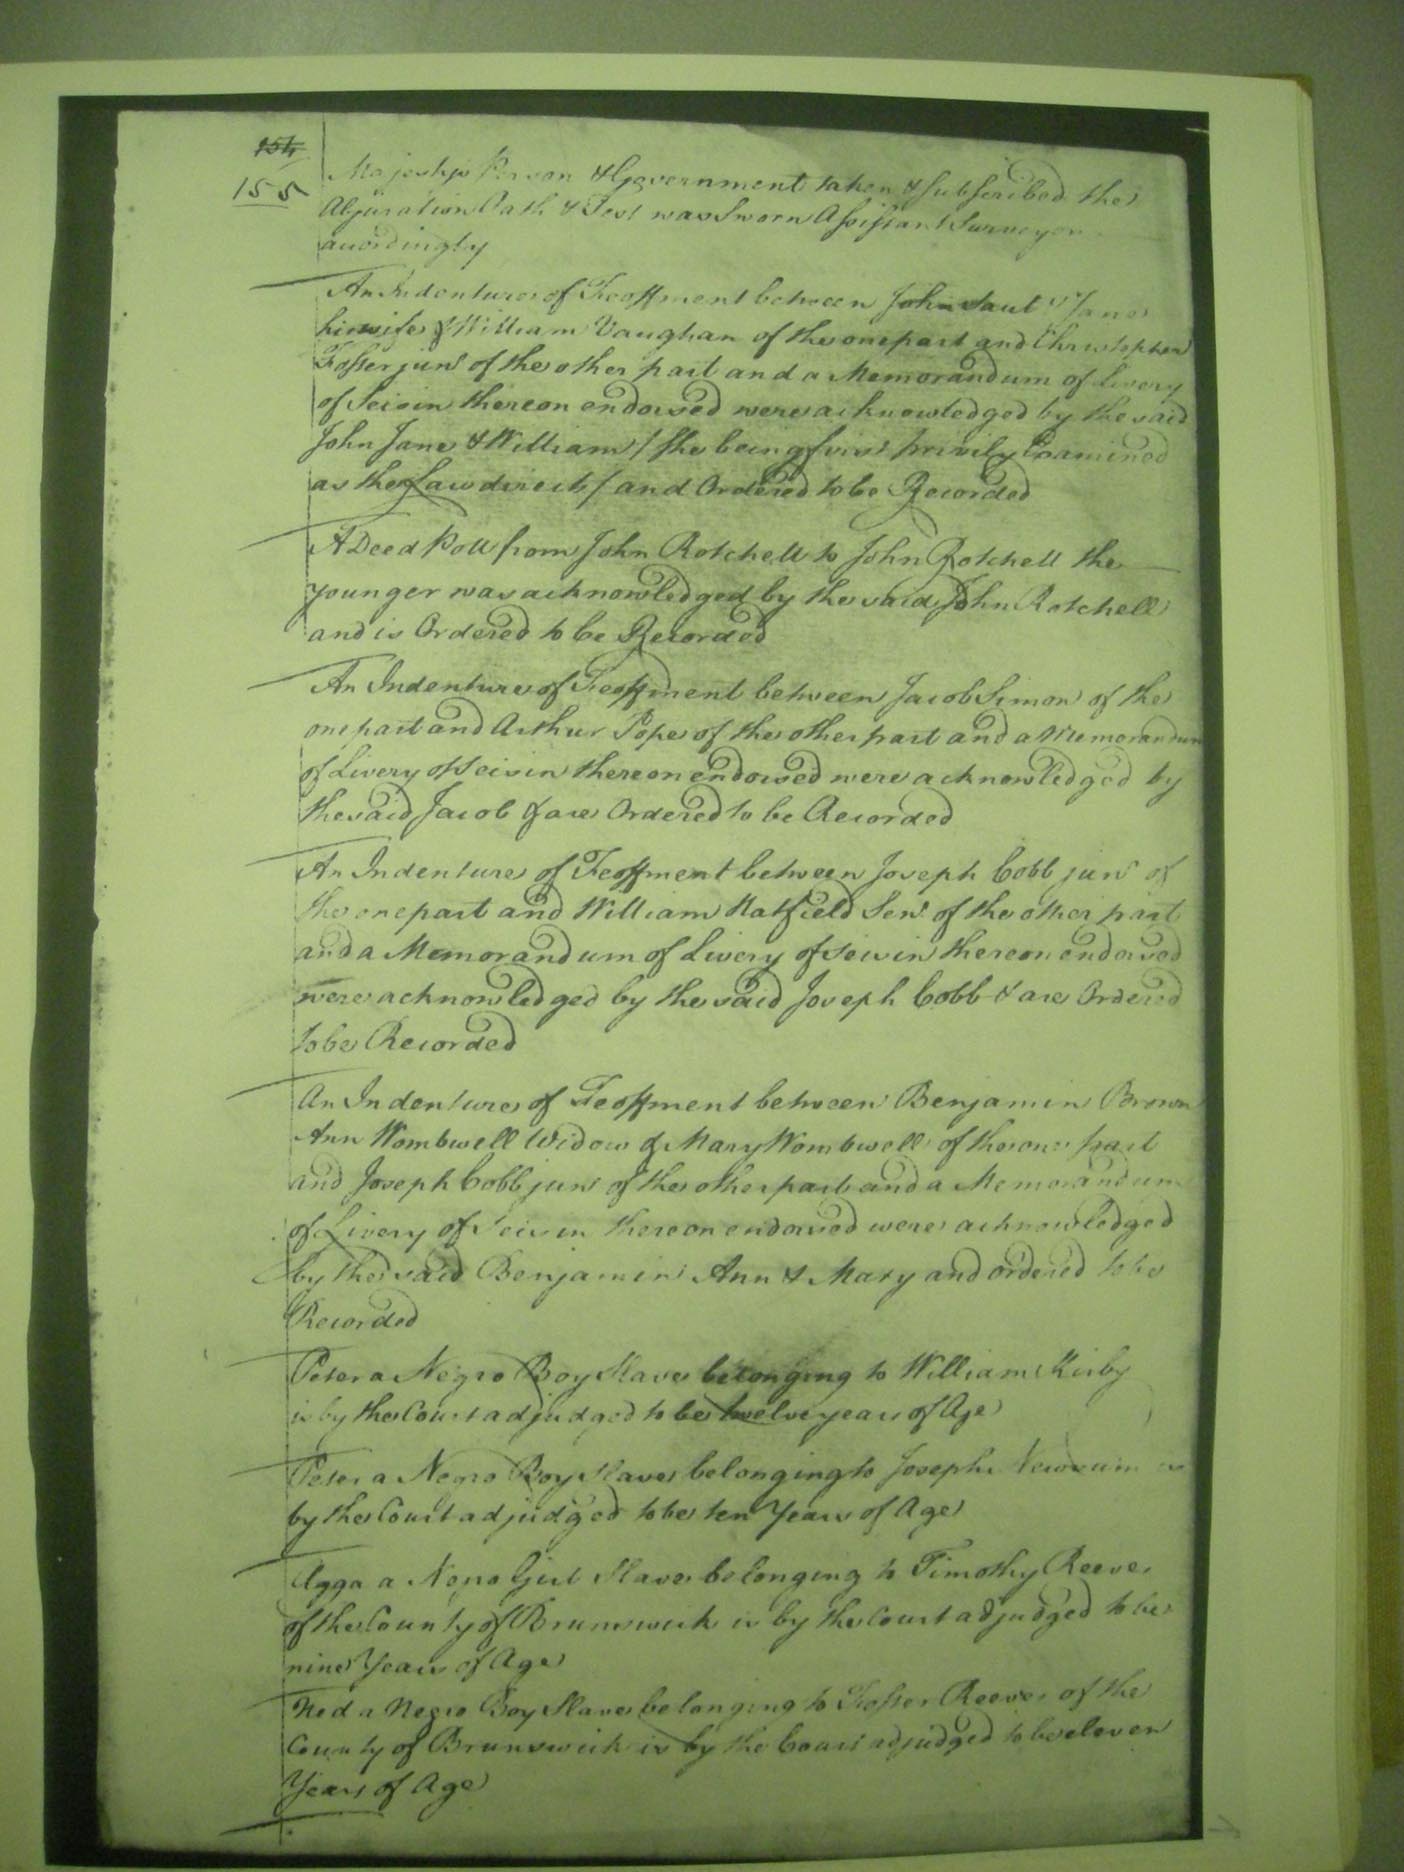 154
155
Majestys Person & Government taken & subscribed the
Abjuration Oath & Test was Sworn Assistant Surveyor
accordingly
An Indenture of Feoffment between John Saul & Jane
his wife & William Vaughan of the one part and Christopher
Fosser junr of the other part and a Memorandum of Livery
of Seisin thereon endorsed were acknowledged by the said
John Jane & William / she being first privily Examined
as the Law directs / and Ordered to be Recorded
A Deed Poll from John Rotchell to John Rotchell the
younger was acknowledged by the said John Rotchell
and is Ordered to be Recorded
An Indenture of Feoffment between Jacob Simon of the
one part and Arthur Pope of the other part and a Memorandum
of Livery of Seisin thereon endorsed were acknowledged by
the said Jacob & are Ordered to be Recorded
An Indenture of Feoffment between Joseph Cobb junr of
the one part and William Hatfield Senr of the other part
and a Memorandum of Livery of seisin thereon endorsed
were acknowledged by the said Joseph Cobb & are Ordered
to be Recorded
An Indenture of Feoffment between Benjamin Brown
Ann Wombwell Widow & Mary Wombwell of the one part
and Joseph Cobb junr of the other part and a Memorandum
of Livery of Seisin thereon endorsed were acknowledged
by the said Benjamin Ann & Mary and ordered to be
Recorded
Peter a Negro Boy Slave belonging to William Kirby
is by the Court adjudged to be twelve years of Age
Peter a Negro Boy Slave belonging to Joseph Newsum is
by the Court adjudged to be ten Years of Age
Agga a Negro Girl Slave belonging to Timothy Reeves
of the County of Brunswick is by the Court adjudged to be
nine Years of Age
Ned a Negro Boy Slave belonging to Fosser Reeves of the
County of Brunswick is by the Court adjudged to be eleven
Years of Age